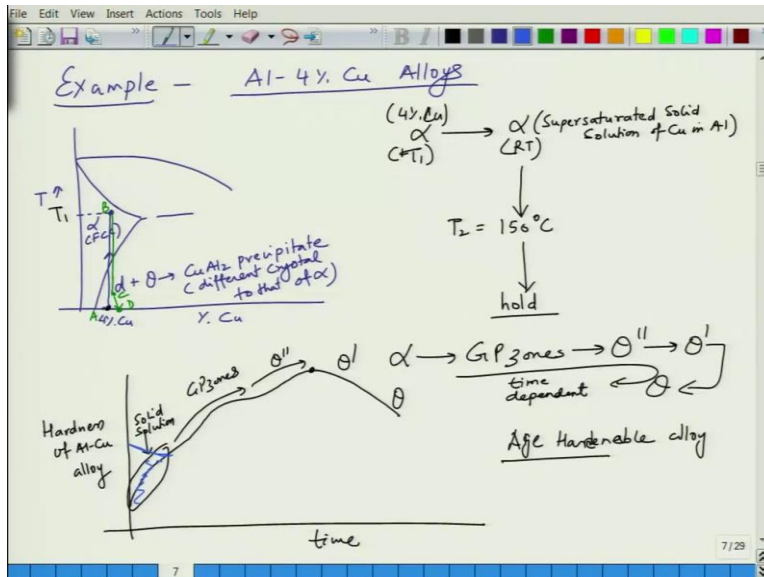 File Edit View Insert Actions Tools Help
Example - Al-4%. Cu Alloys
(4%.Cu)
α → α (Supersaturated Solid
Solution of Cu in Al)
(T1) (RT)
T ↑
T1
B
α
(FCC)
α + θ → CuAl2 precipitate
(different crystal
to that of α)
C
D
A 4%.Cu
%. Cu
T2 = 150°C
hold
α → GP Zones → θ'' → θ'
time
dependent
θ
Age Hardenable alloy
Hardness
of Al-Cu
alloy
Solid
Solution
GP Zones
θ''
θ'
θ
time
7/29
7